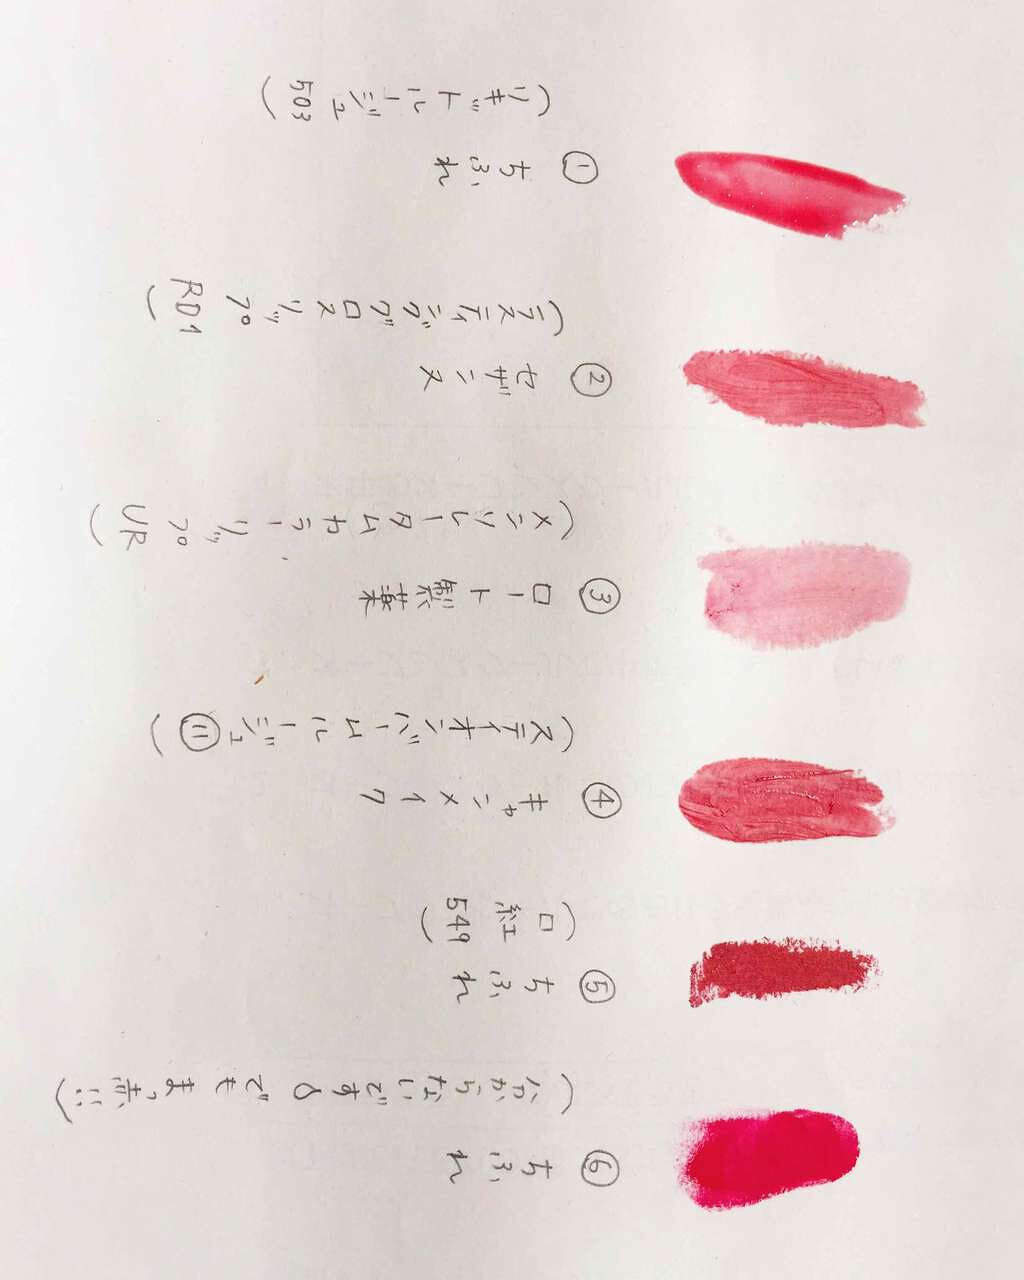 ① ちふれ
(リキットルージュ 503)
② セザンヌ
(ラスティンググロスリップ RD1)
③ ロート製薬
(メンソレータムカラーリップ UR)
④ キャンメイク
(ステイオンバームルージュ ⑪)
⑤ ちふれ
(口紅 549)
⑥ ちふれ
(分からないです。でもまっ赤!!)